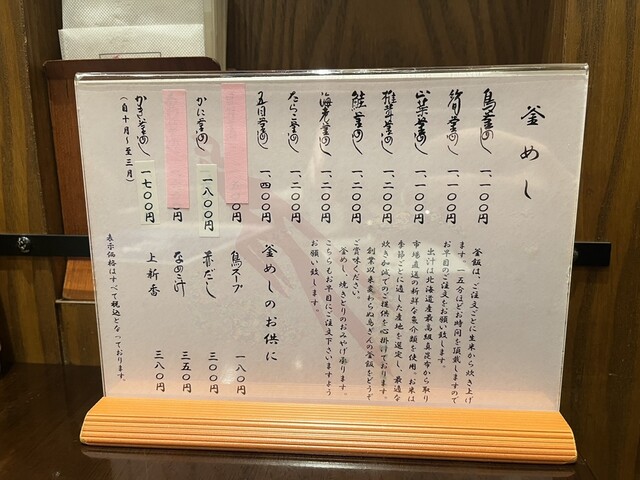 釜めし
鳥釜めし 一、一〇〇円
竹の子釜めし 一、一〇〇円
山菜釜めし 一、一〇〇円
椎茸釜めし 一、一〇〇円
鮭釜めし 一、二〇〇円
海老釜めし 一、二〇〇円
たらこ釜めし 一、二〇〇円
五目釜めし 一、四〇〇円
〇〇円
かに釜めし 一、八〇〇円
円
かき釜めし 一、七〇〇円
(自十月〜至三月)
釜飯は、ご注文ごとに生米から炊き上げ
ます。一五分ほどお時間を頂戴しますので
お早目のご注文をお願い致します。
出汁は北海道産最高級真昆布から取り
市場直送の新鮮な魚介類を使用。お米は
季節ごとに適した産地を選定し、最適な
炊き加減でのご提供を心掛けております。
創業以来変わらぬ鳥ぎんの釜飯をどうぞ
ご賞味ください。
釜めし、焼きとりのおみやげ承ります。
こちらもお早目にご注文下さいますよう
お願い致します。
釜めしのお供に
鳥スープ 一八〇円
赤だし 三〇〇円
なめこ汁 三五〇円
上新香 三八〇円
表示価格はすべて税込となっております。